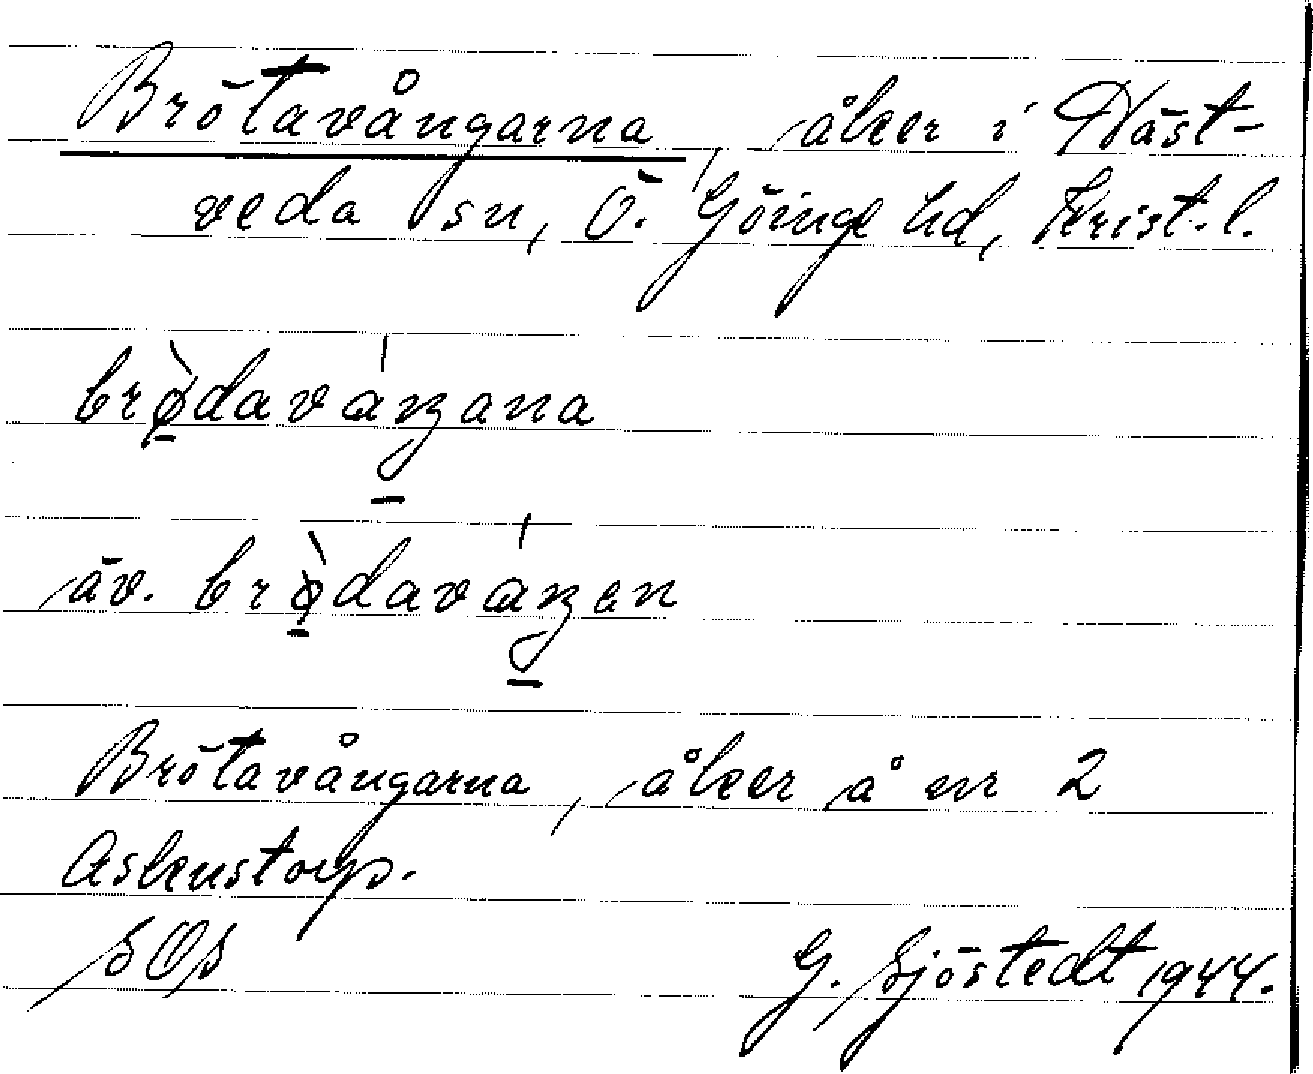 Brötavångarna, åker i Häst-
veda sn, Ö. Göinge hd, Krist.l.
brø̀daváŋana
äv. brø̀daváŋen
Brötavångarna, åker å nr 2
Askenstorp.
SOS
G. Sjöstedt 1944.